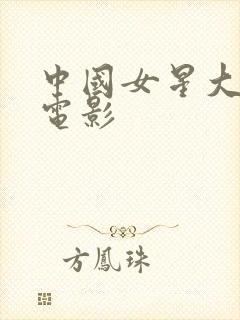 中國女星大
電影
方鳳珠